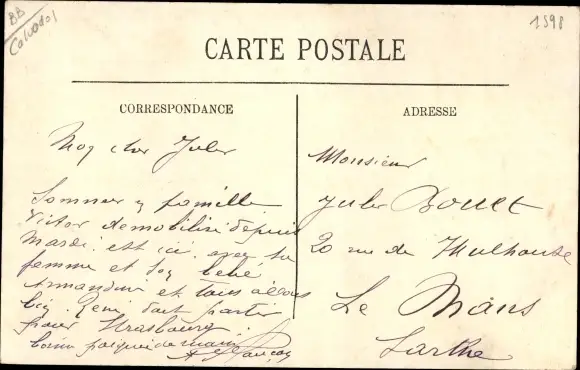 BB
Calvados
1598
CARTE POSTALE
CORRESPONDANCE
ADRESSE
Moy cher Jules
Sommes y famille
Victor demobilisé depuis
Mardi est ici avec sa
femme et soy bébé
Armandine et tous allons
biy. René doit partir
pour Strasbourg.
Monsieur
Jules Bouet
20 rue de Mulhouse
Le Mans
Sarthe